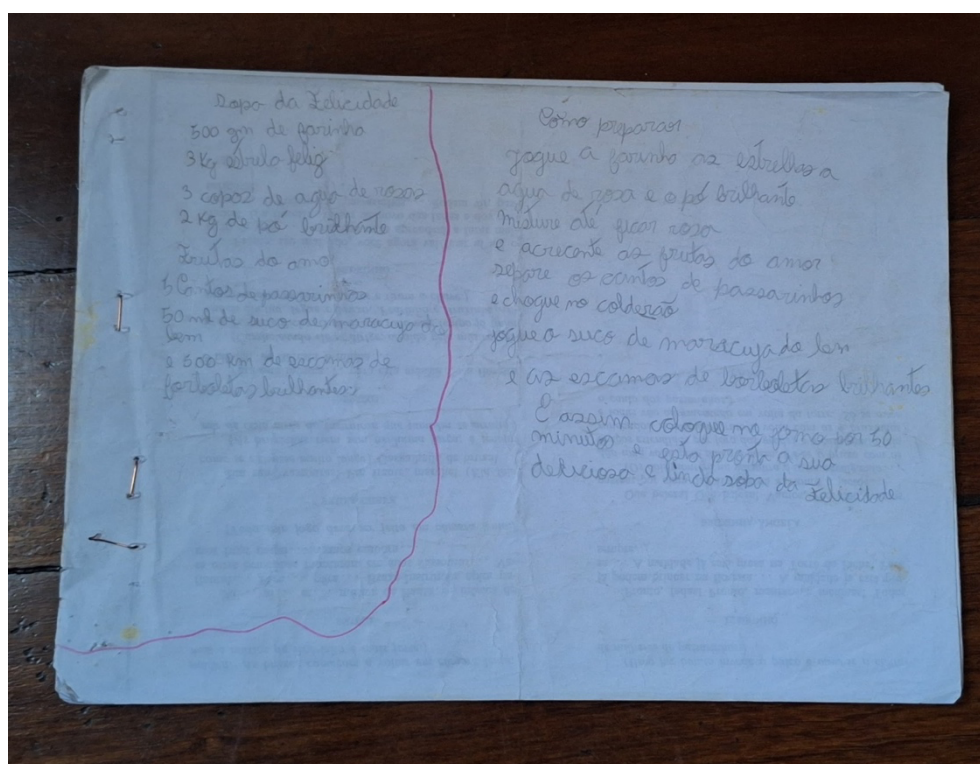 Sopa da Felicidade
500 gm de farinha
3 Kg estrela feliz
3 copos de agua de rosas
2 Kg de pó brilhante
Frutas do amo
5 Cantos de passarinhos
50 ml de suco de maracuja do
bem
e 500 km de escamas de
borboletas brilhantes
Como preparar
jogue a farinha as estrellas a
agua de rosa e o pó brilhante
misture até ficar rosa
e acrecente as frutas do amor
separe os cantos de passarinhos
e choque no colderão
jogue o suco de maracuja do bem
e as escamas de borboletas brilhantes
E assim coloque no forno por 50
minutos e está pront a sua
deliciosa e linda sopa da Felicidade